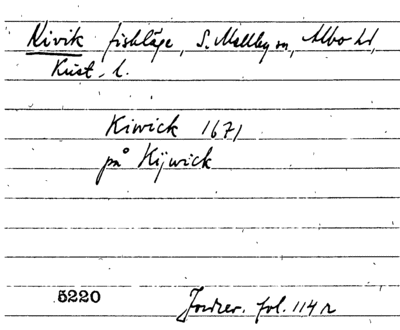 Kivik fiskläge, S. Mellby sn, Albo hd,
Krist. l.
Kiwick 1671
på Kijwick
5220
Jordrev. fol. 114 r